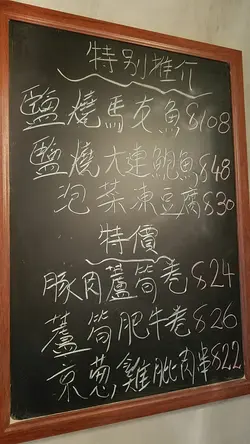 特别推介
鹽燒馬友魚$108
鹽燒大連鮑魚$48
泡菜凍豆腐$30
特價
豚肉蘆筍卷$24
蘆筍肥牛卷$26
京葱雞肶肉串$22